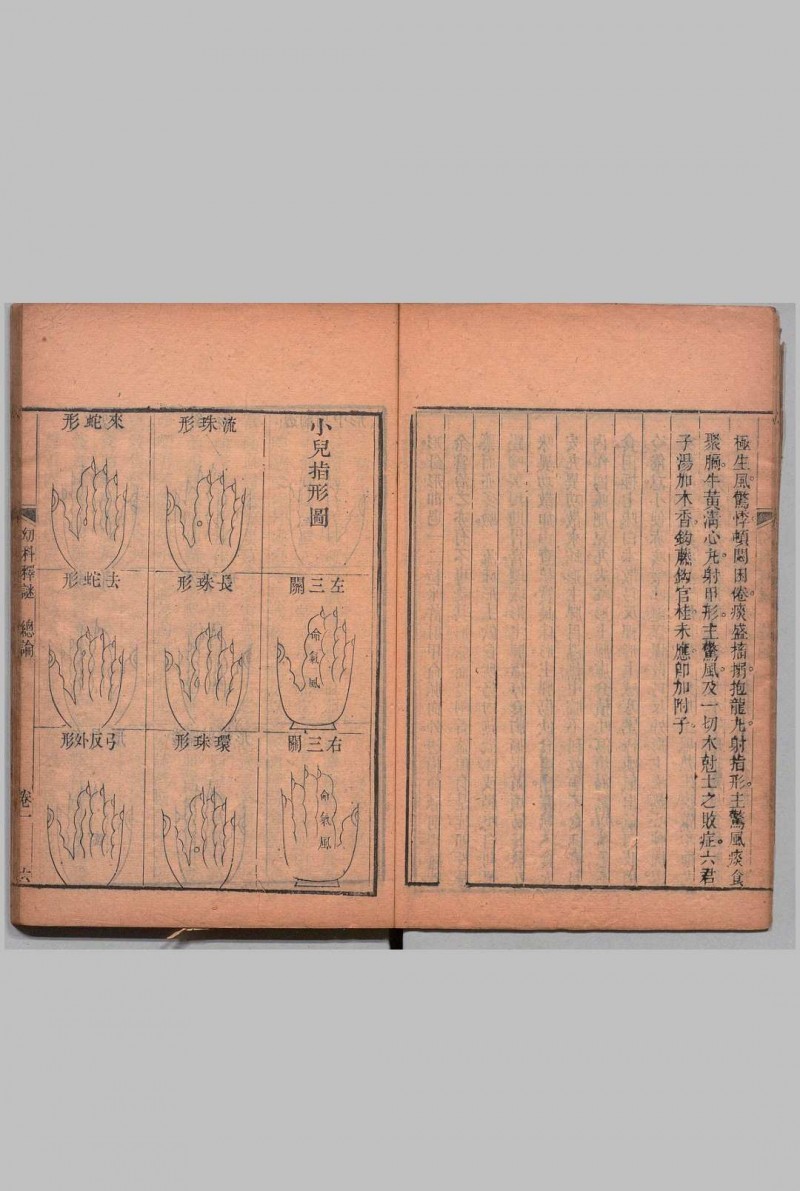 極生風驚悸頓悶困倦痰盛搐搦抱龍丸射指形主驚風痰食
聚膈牛黃清心丸射甲形主驚風及一切木尅土之敗症六君
子湯加木香鈎藤鈎官桂未應卽加附子
小兒指形圖
左三關
命
氣
風
右三關
命
氣
風
流珠形
長珠形
環珠形
來蛇形
去蛇形
弓反外形
幼科釋謎 總論 卷一 六